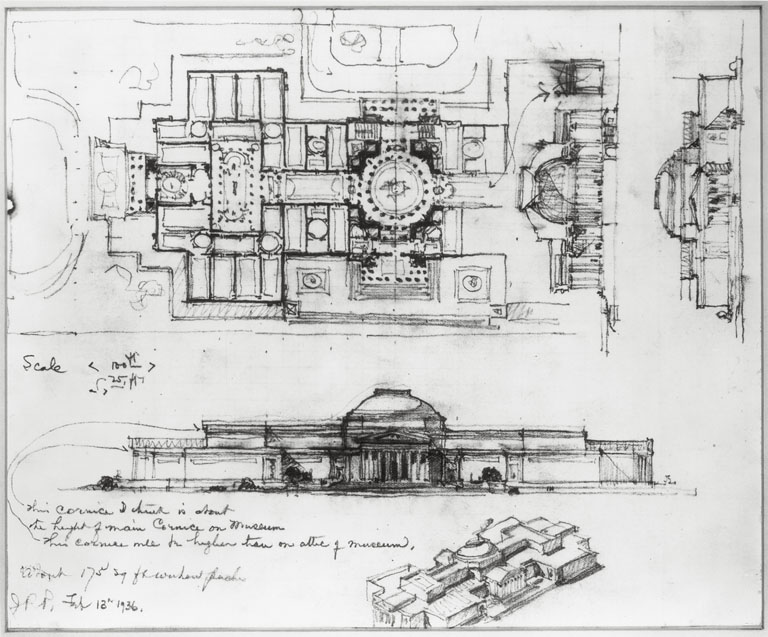 Scale < 100 ft >
25 ft
This cornice I think is about
the height of main Cornice on Museum
This cornice will be higher than on attic of museum.
175
J.R.P. Feb 13th 1936.